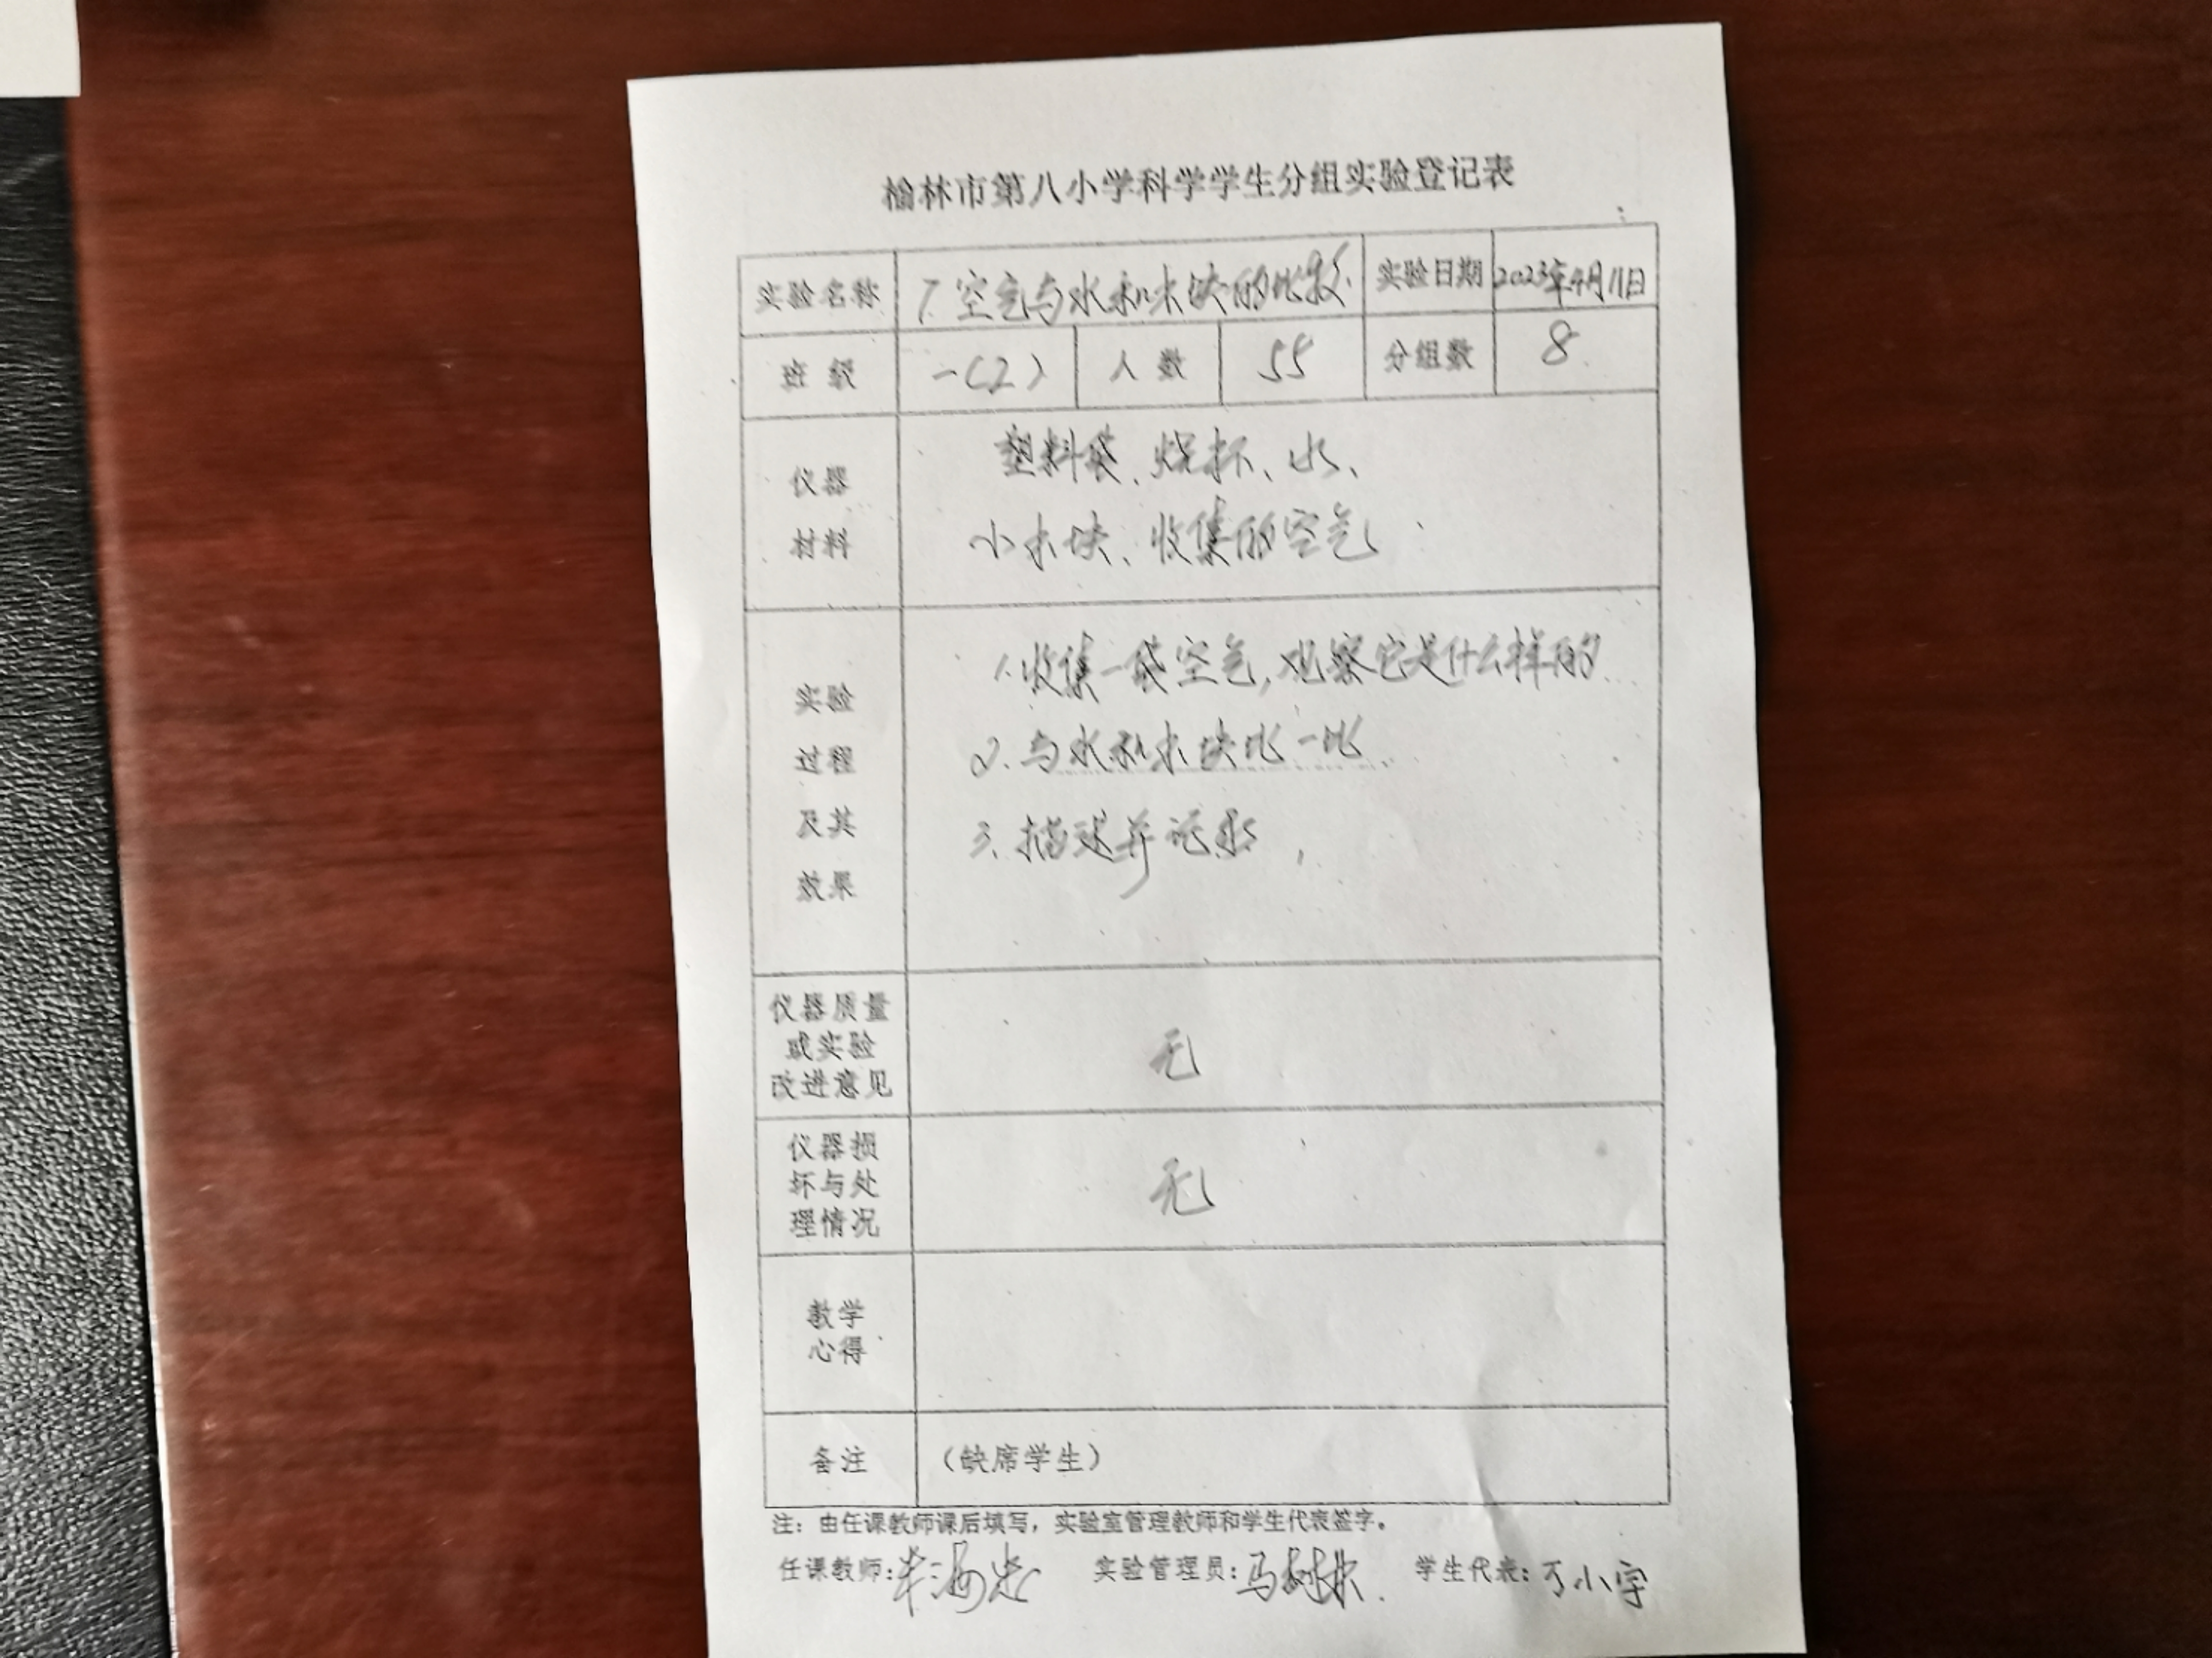 榆林市第八小学科学学生分组实验登记表
实验名称 7.空气与水和木块的比较. 实验日期 2023年4月11日
班级 一(2) 人数 55 分组数 8
仪器
材料
塑料袋、烧杯、水、
小木块、收集的空气
实验
过程
及其
效果
1.收集一袋空气,观察它是什么样的
2.与水和木块比一比.
3.描述并记录,
仪器质量
或实验
改进意见
无
仪器损
坏与处
理情况
无
教学
心得
备注 (缺席学生)
注：由任课教师课后填写，实验室管理教师和学生代表签字。
任课教师: 实验管理员: 马 学生代表: 丁小宇